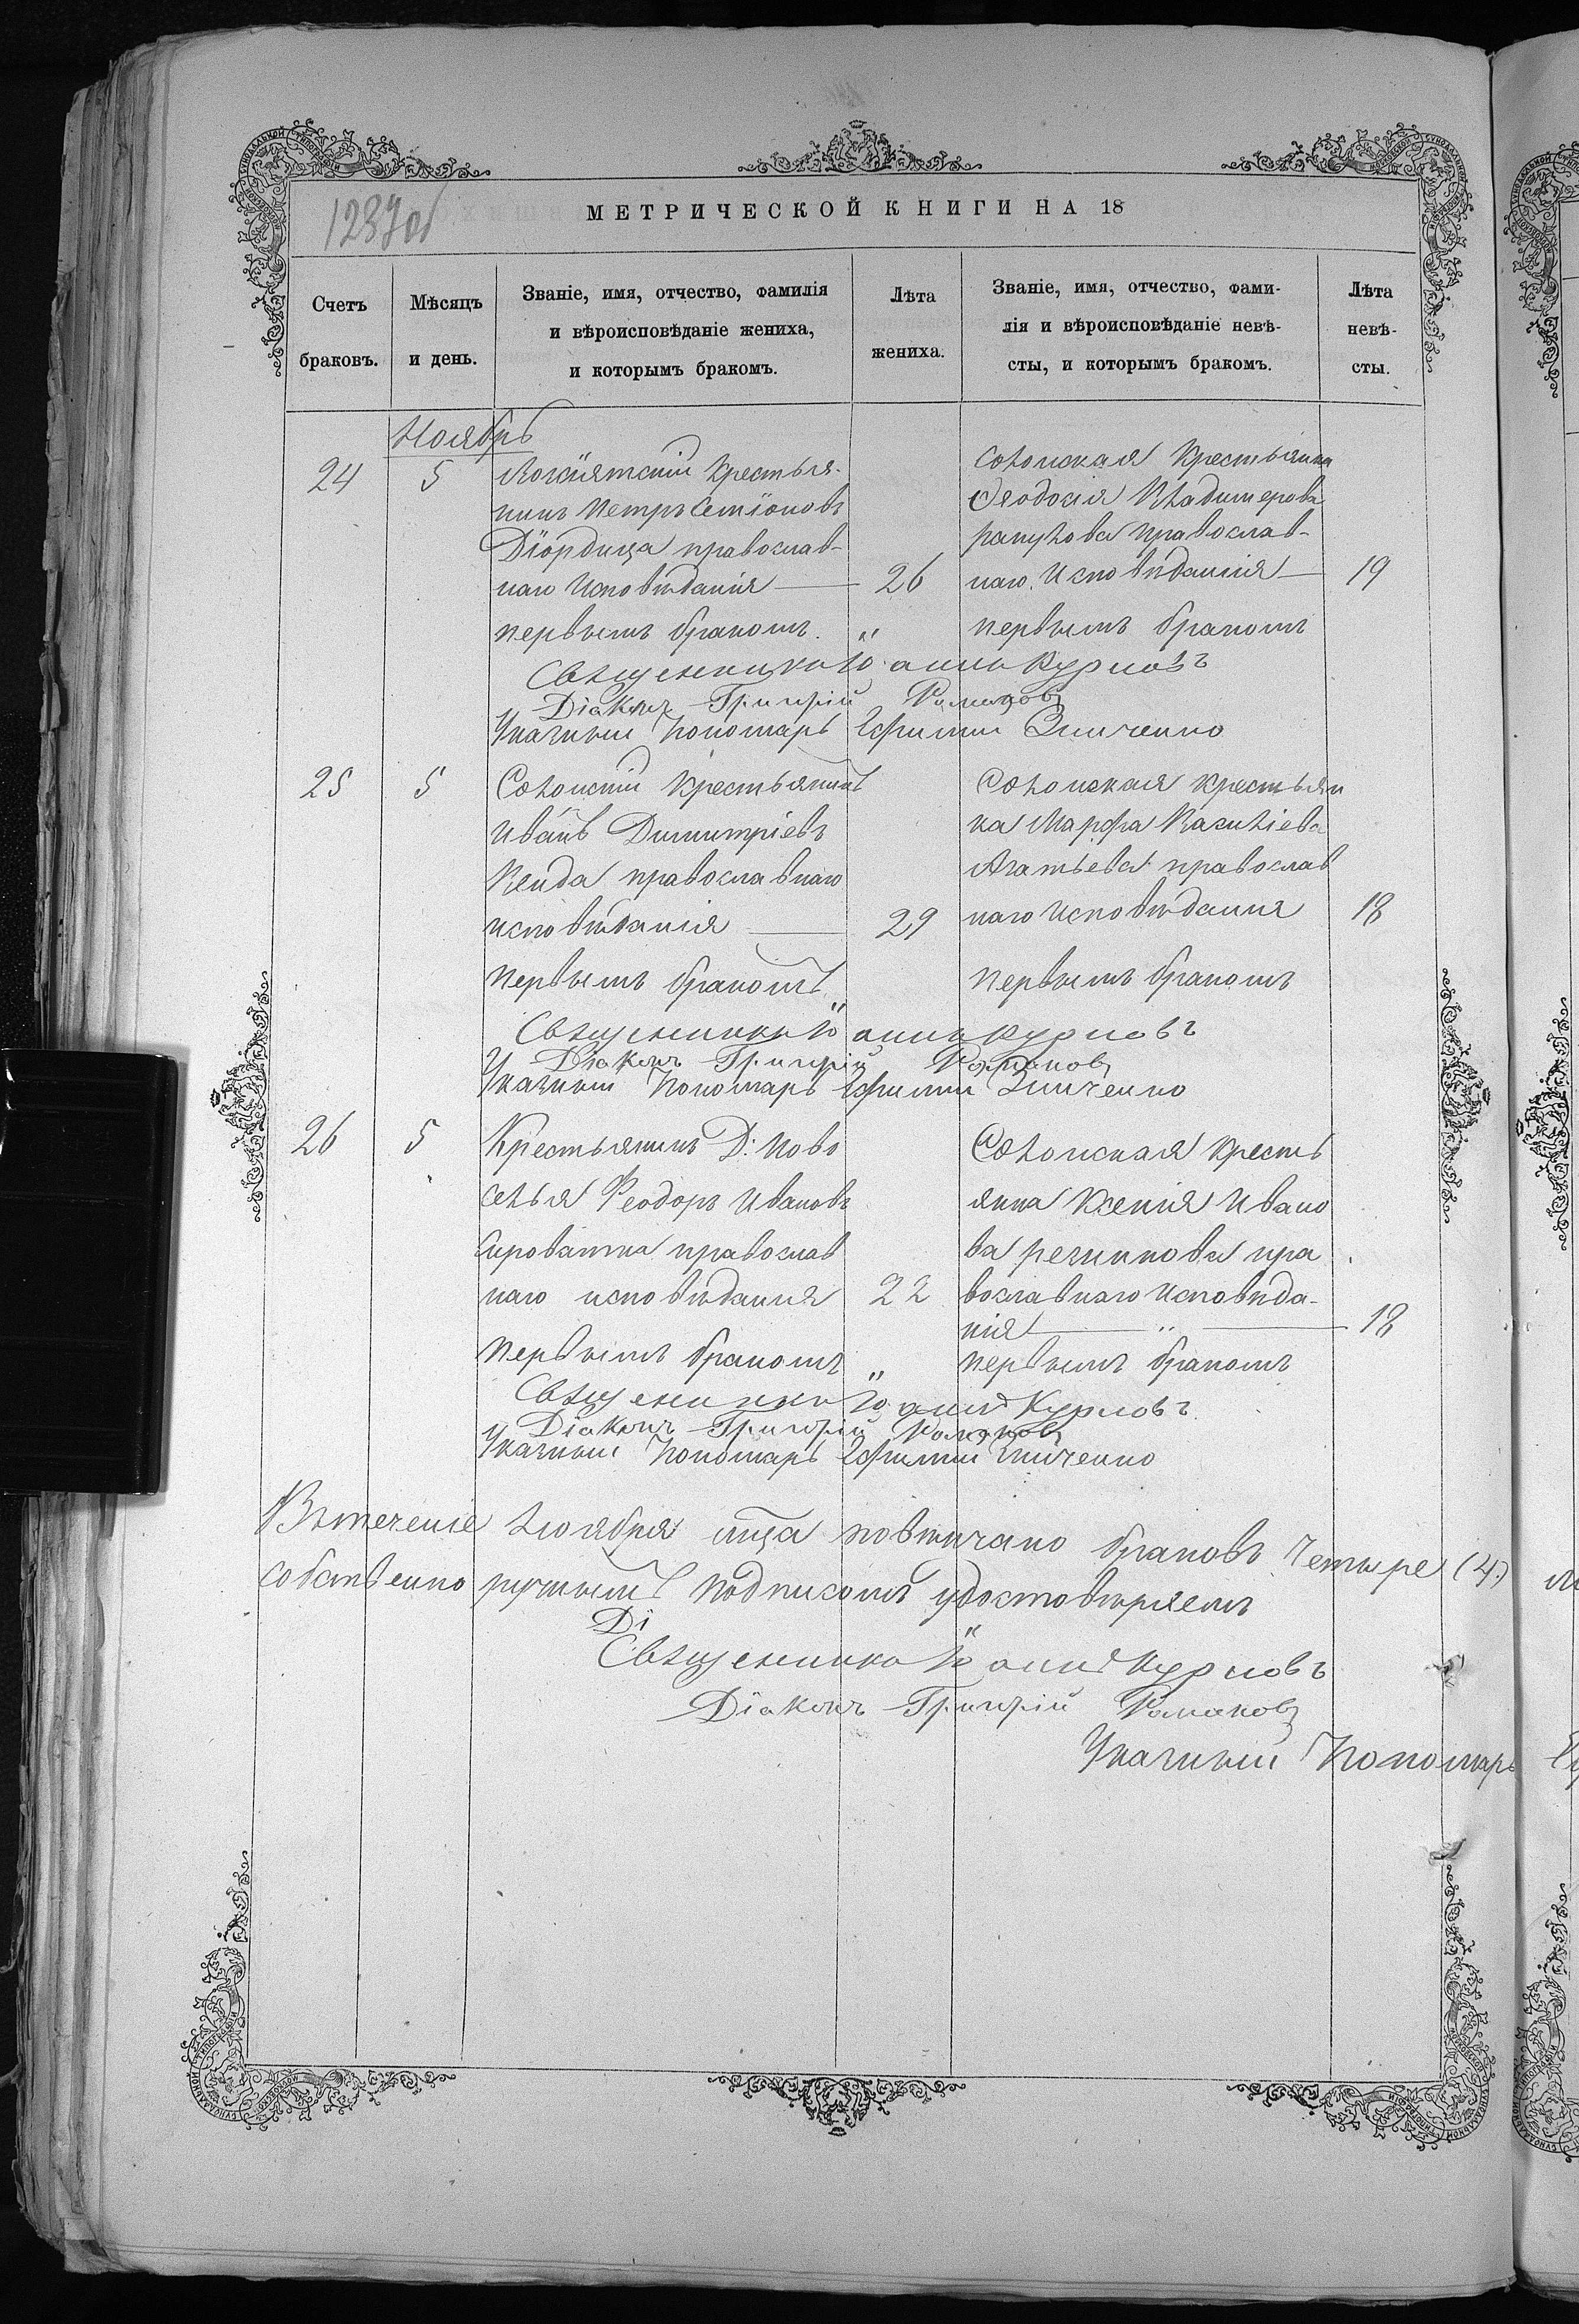 1237об
МЕТРИЧЕСКОЙ КНИГИ НА 18
Счетъ браковъ.
Мѣсяцъ и день.
Званіе, имя, отчество, фамилія
и вѣроисповѣданіе жениха,
и которымъ бракомъ.
Лѣта
жениха.
Званіе, имя, отчество, фами-
лія и вѣроисповѣданіе невѣ-
сты, и которымъ бракомъ.
Лѣта
невѣ-
сты.
Ноябрь
24
5
Крестья-
нинъ Петръ Семіоновъ
Діордица православ-
наго Исповѣданія
26
первымъ бракомъ
Крестьянка
Феодосія Владимерова
православ-
наго Исповѣданія
19
первымъ бракомъ
Священникъ Іоаннъ Курловъ
Діаконъ Григорій Романовъ
Указный Пономарь Ефимій Зинченко
25
5
Солонскій Крестьянинъ
Иванъ Димитріевъ
православнаго
исповѣданія
29
первымъ бракомъ
Солонская крестьян
ка Марфа Василіева
православ
наго исповѣданія
18
первымъ бракомъ
Священникъ Іоаннъ Курловъ
Діаконъ Григорій Романовъ
Указный Пономарь Ефимій Зинченко
26
5
Крестьянинъ Д: Ново
селья Феодоръ Ивановъ
Сироватка православ
наго исповѣданія
22
первымъ бракомъ
Солонская Кресть
янка Ксенія Ивано
ва пра
вославнаго Исповѣда-
нія
18
первымъ бракомъ
Священникъ Іоаннъ Курловъ
Діаконъ Григорій Романовъ
Указный Пономарь Ефимій Зинченко
Въ теченіе Ноября мца повѣнчано браковъ Четыре (4)
собственно ручнымъ подписомъ удостовѣряемъ
Ді
Священникъ Іоаннъ Курловъ
Діаконъ Григорій Романовъ
Указный Пономарь